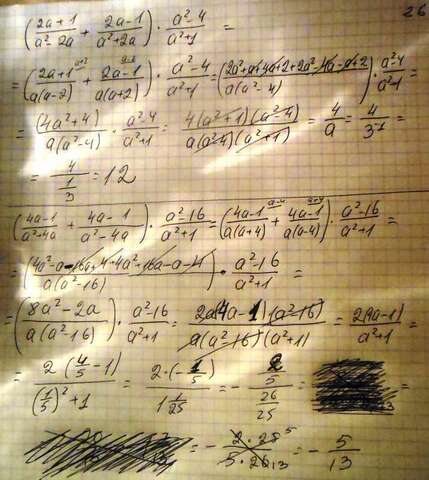 26
(2a+1/a²-2a + 2a-1/a²+2a) · a²-4/a²+1 =
= (2a+1/a(a-2) + 2a-1/a(a+2)) · a²-4/a²+1 = (2a²+a+4a+2+2a²-4a-a+2/a(a²-4)) · a²-4/a²+1 =
= (4a²+4)/a(a²-4) · a²-4/a²+1 = 4(a²+1)(a²-4)/a(a²-4)(a²+1) = 4/a = 4/3⁻¹ =
= 4/(1/3) = 12
(4a-1/a²+4a + 4a-1/a²-4a) · a²-16/a²+1 = (4a-1/a(a+4) + 4a-1/a(a-4)) · a²-16/a²+1 =
= (4a²-a-16a+4+4a²+16a-a-4/a(a²-16)) · a²-16/a²+1 =
= (8a²-2a/a(a²-16)) · a²-16/a²+1 = 2a(4a-1)(a²-16)/a(a²-16)(a²+1) = 2(4a-1)/a²+1 =
= 2(4/5-1)/(1/5)²+1 = 2·(-1/5)/1 1/25 = - (2/5)/(26/25) = =
= - 2·25⁵/5·26₁₃ = - 5/13